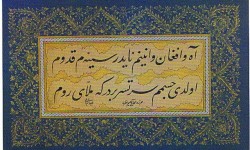 آه و افغان و انینم نایدر سینه م قدوم
اولدی جسمم سرتسر بر درکه ملای روم